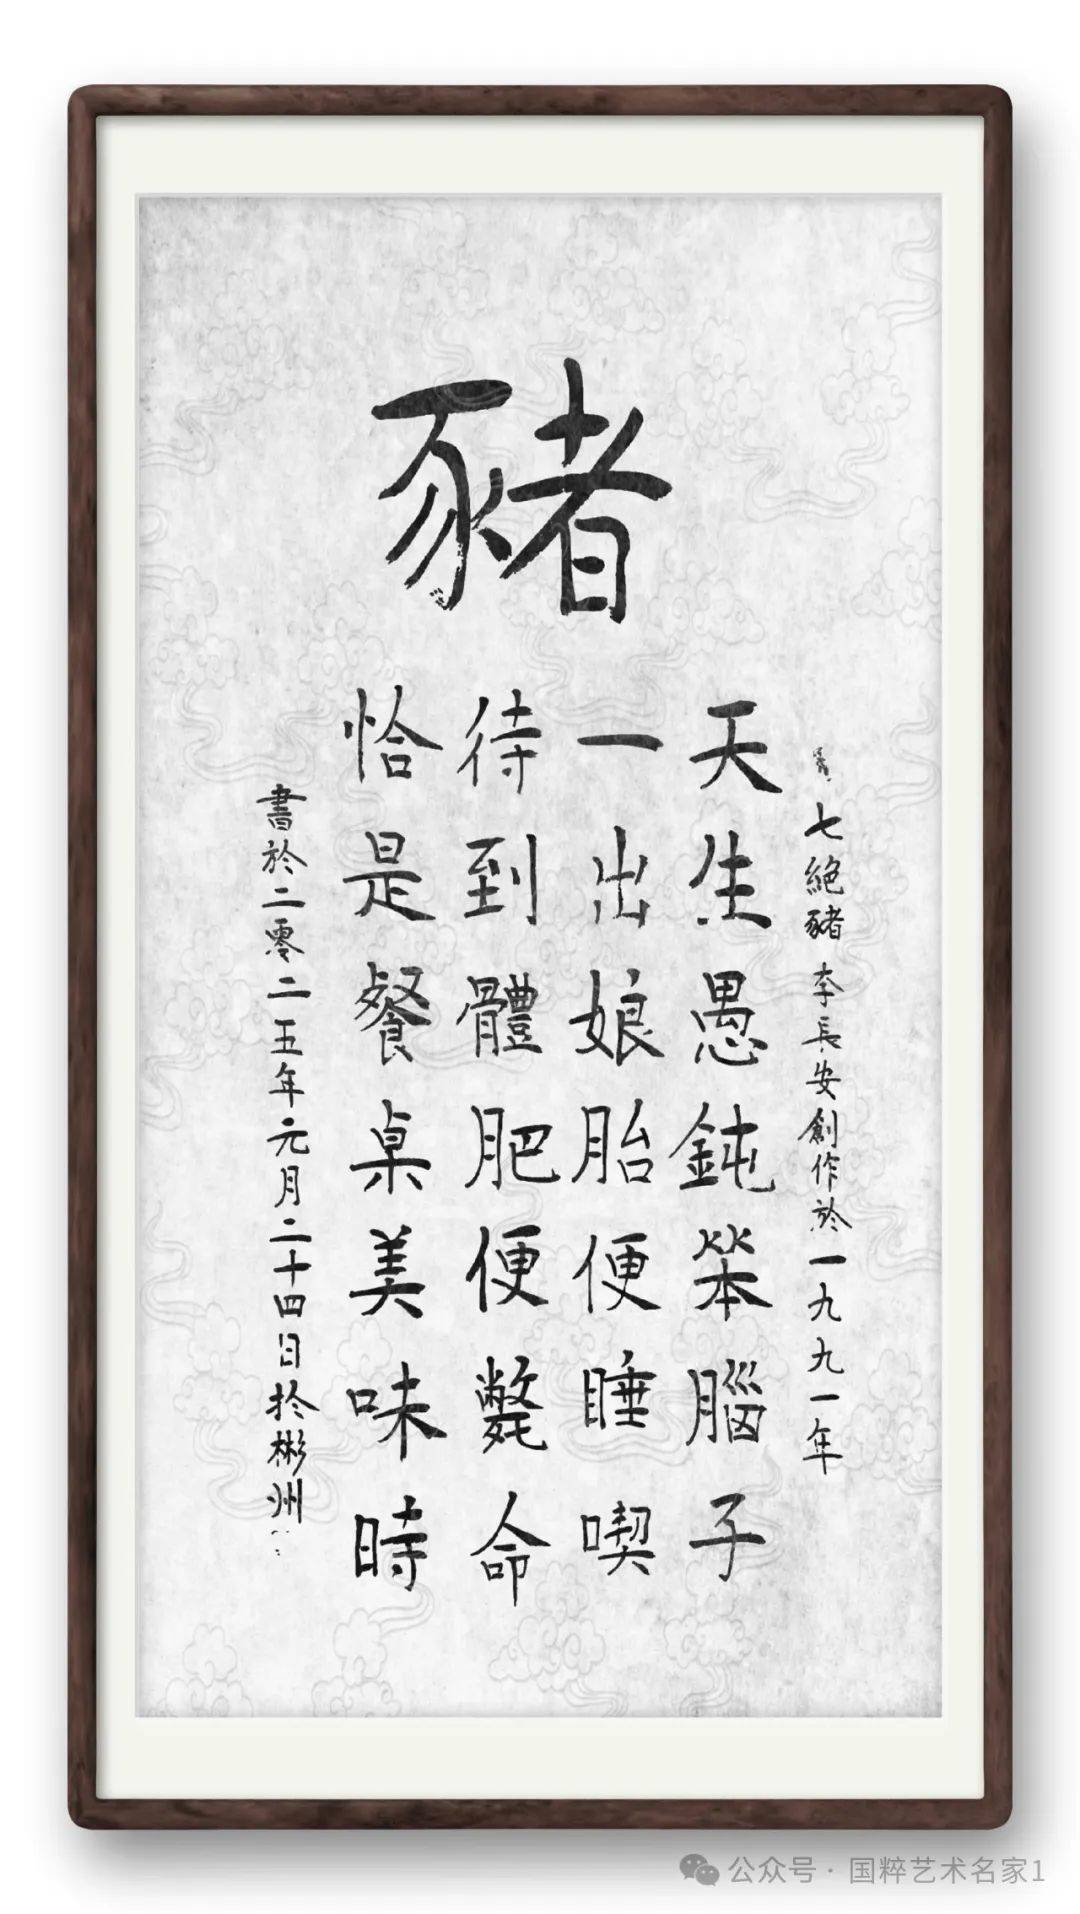 豬
七絕豬 李長安創作於一九九一年
天生愚鈍笨腦子
一出娘胎便睡喫
待到體肥便斃命
恰是餐桌美味時
書於二零二五年元月二十四日於彬州
公众号 · 国粹艺术名家1